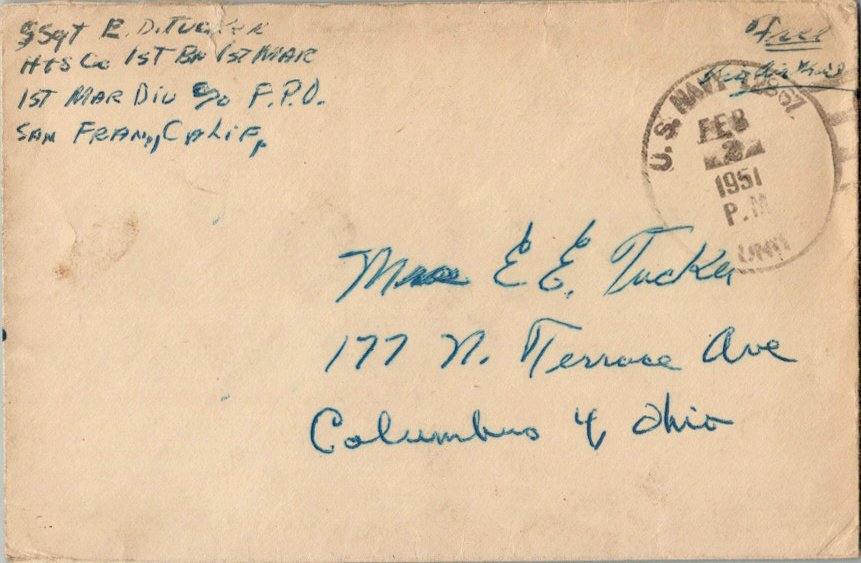 SSgt E. D. TUCKER
H+S Co 1ST BN 1ST MAR
1ST MAR DIV c/o F.P.O.
SAN FRAN., CALIF,
Free
U.S. NAVY
FEB
2
1951
P.M.
UNIT
E E. Tucker
177 N. Terrace Ave
Columbus 4, Ohio